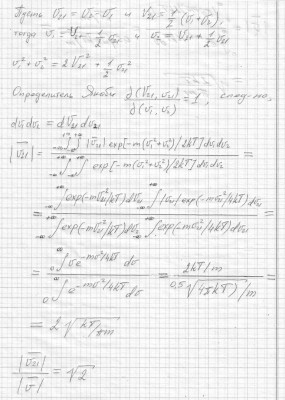 Пусть v₂₁ = v₂ - v₁ и V₂₁ = 1/2 (v₁ + v₂),
тогда v₁ = V₂₁ - 1/2 v₂₁ и v₂ = V₂₁ + 1/2 v₂₁
v₁² + v₂² = 2V₂₁² + 1/2 v₂₁²
Определитель Якоби ∂(V₂₁, v₂₁)/∂(v₁, v₂) = 1, след-но,
dv₁dv₂ = dV₂₁dv₂₁
|v̄₂₁| = ∫∫|v₂₁| exp[-m(v₁²+v₂²)/2kT]dv₁dv₂ / ∫∫ exp[-m(v₁²+v₂²)/2kT]dv₁dv₂ =
= ∫exp(-mV₂₁²/kT)dV₂₁ ∫|v₂₁| exp(-mv₂₁²/4kT)dv₂₁ / ∫exp(-mV₂₁²/kT)dV₂₁ ∫exp(-mv₂₁²/4kT)dv₂₁ =
= ∫v e^(-mv²/4kT) dv / ∫e^(-mv²/4kT) dv = 2kT/m / 0,5√(4πkT)/m =
= 2√(kT/πm)
|v̄₂₁| / |v̄| = √2